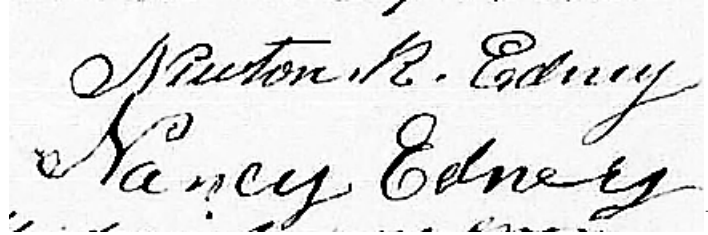 Newton R. Edney
Nancy Edney